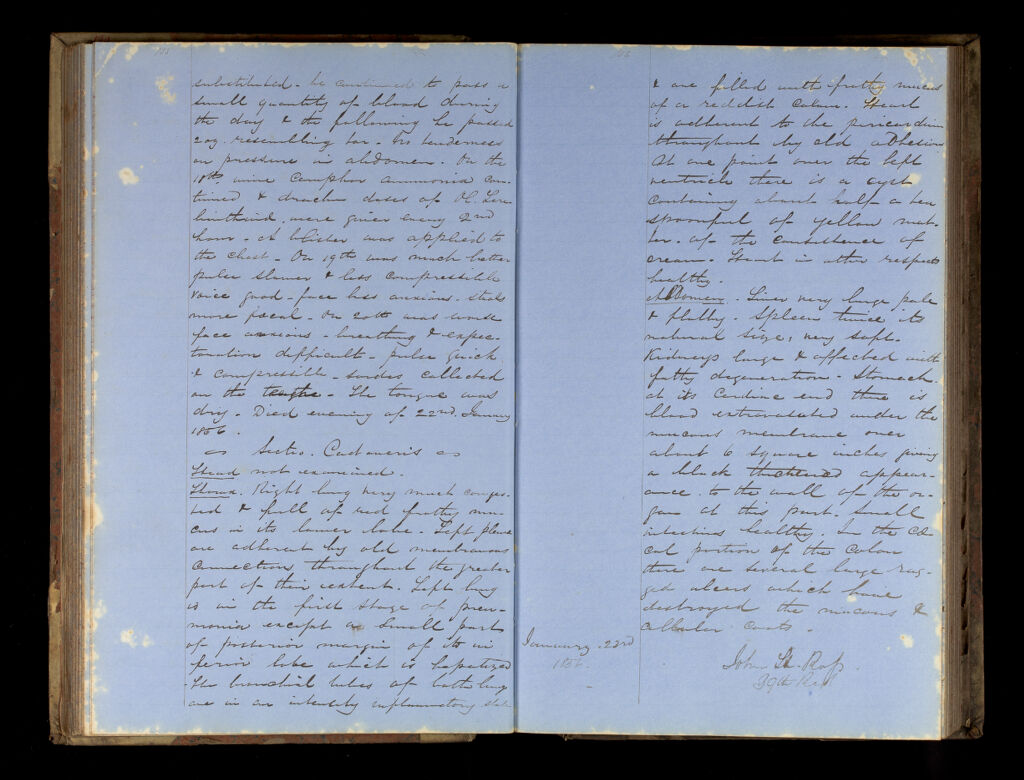 substituted - he continued to pass a
small quantity of blood during
the day & the following he passed
2 oz. resembling tar. No tenderness
on pressure in abdomen. On the
18th wine Camphor Ammonia con-
tinued & drachm doses of Ol. Tere-
binthinæ were given every 2nd
hour - A blister was applied to
the chest - On 19th was much better
pulse slower & less compressible
voice good - face less anxious. stools
more fæcal. On 20th was worse
face anxious - breathing & expec-
toration difficult - pulse quick
& compressible - sordes collected
on the teeth - The tongue was
dry - Died evening of 22nd January
1856.
Sectio. Cadaveris
Head not examined.
Thorax. Right lung very much conges-
ted & full of red frothy mu-
cus in its lower lobe - Left pleuræ
are adherent by old membranous
connection throughout the greater
part of their extent. Left lung
is in the first stage of pneu-
monia except a small part
of posterior margin of its in
ferior lobe which is hepatized
The bronchial tubes of both lungs
are in an intensely inflammatory state
& are filled with frothy mucus
of a reddish colour. Heart
is adherent to the pericardium
throughout by old adhesions
At one point over the left
ventricle there is a cyst
containing about half a tea
spoonful of yellow mat-
ter. of the consistence of
cream. Heart in other respects
healthy.
Abdomen. Liver very large pale
& flabby. Spleen twice its
natural size, very soft.
Kidneys large & affected with
fatty degeneration - Stomach
at its cardiac end there is
blood extravasated under the
mucous membrane over
about 6 square inches giving
a black thickened appear-
ance to the wall of the or-
gan at this part. Small
intestines healthy. In the cæ-
cal portion of the colon
there are several large rag-
ged ulcers which have
destroyed the mucous &
cellular coats.
January 22nd
1856.
John Ross
99th Reg